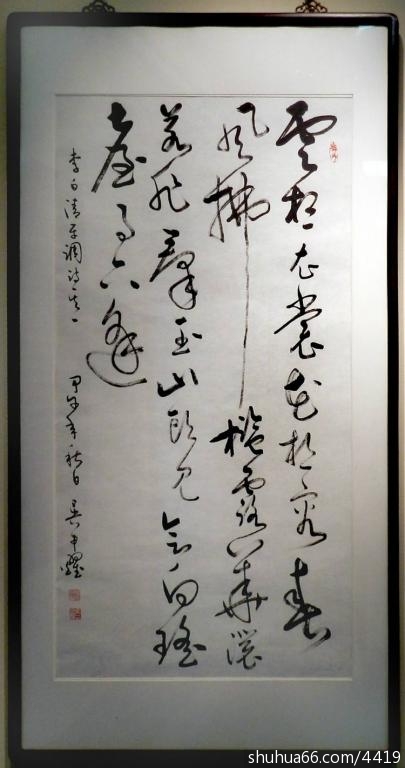 雲想衣裳花想容春
風拂檻露華濃
若非群玉山頭見會向瑤
臺月下逢
李白清平調詩其一 甲午年秋日 吳中耀
shuhua66.com/4419